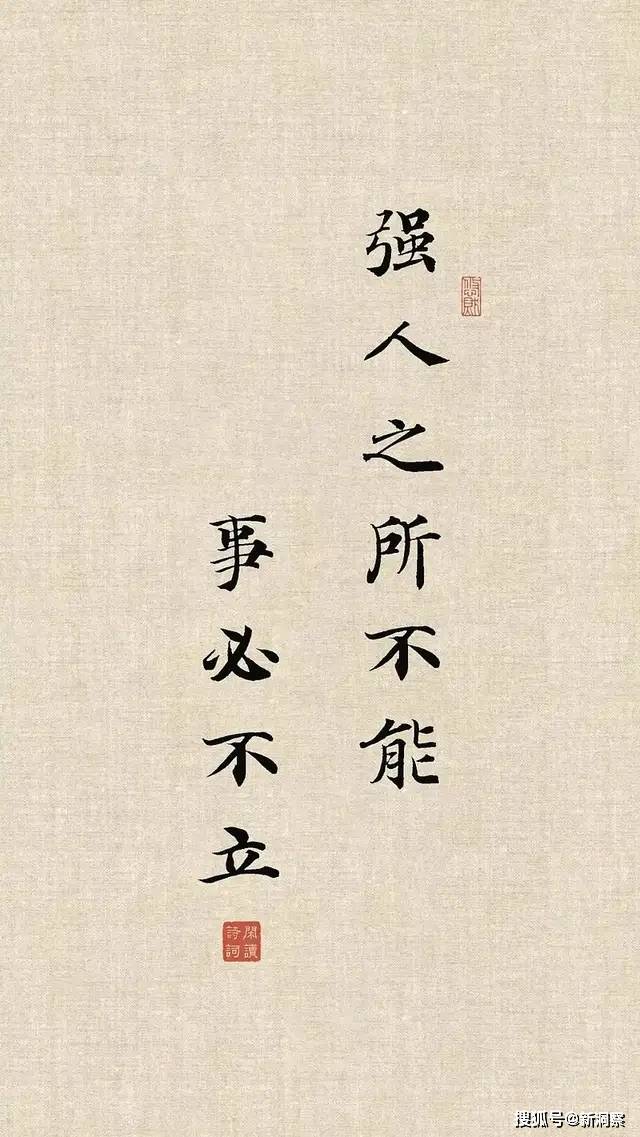 强人之所不能
事必不立
閑讀
詩詞
搜狐号@新洞察